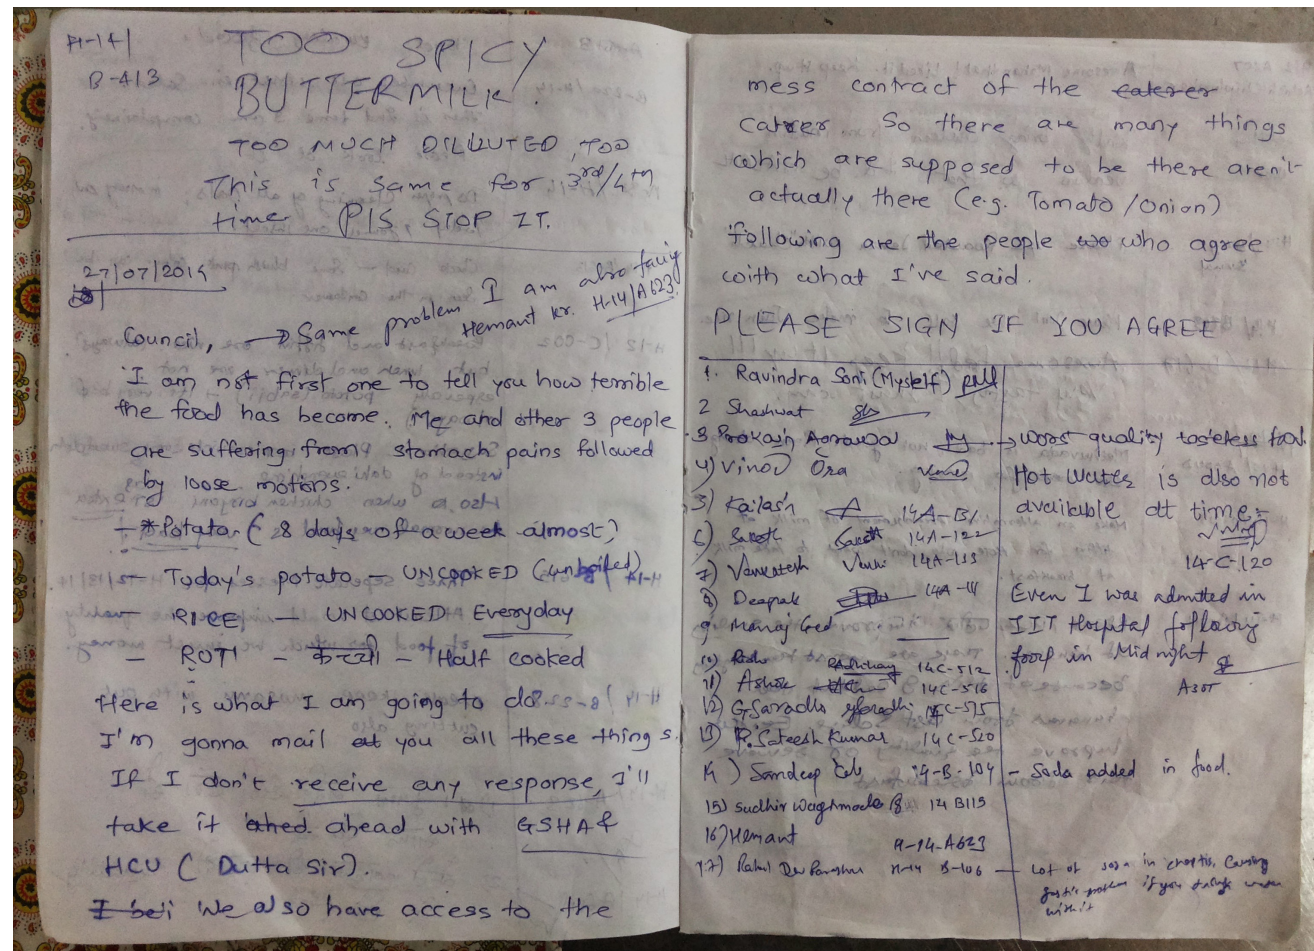 H-14/
B-413
TOO SPICY
BUTTERMILK.
TOO MUCH DILUUTED, TOO
This is same for 3rd/4th
time (Pls STOP IT.
27/07/2014
I am also facing
Same problem
Hemant Kr. H-14/A623
Council,
I am not first one to tell you how terrible
the food has become. Me and other 3 people
are suffering from stomach pains followed
by loose motions.
- *Potato (8 days of a week almost)
- Today's potato - UNCOOKED (unboiled)
- RICE - UNCOOKED Everyday
- ROTI - कच्ची - Half cooked
Here is what I am going to do
I'm gonna mail at you all these things.
If I don't receive any response, I'll
take it ahed ahead with GSHA &
HCU (Dutta Sir).
I beli We also have access to the
mess contract of the caterer
caterer So there are many things
which are supposed to be there aren't
actually there (e.g. Tomato/Onion)
Following are the people wo who agree
with what I've said.
PLEASE SIGN IF YOU AGREE
1. Ravindra Soni (Myself)
2 Shashwat
3 Prakash Agrawal → Worst quality tasteless food.
4) Vinod Ora Vinod
5) Kailash 14A-B1
6) Suresh 14A-122
7) Venkatesh Venki 14A-133
8) Deepak 14A-111
9. Manoj
10) 14C-512
11) Ashok 14C-516
12) G Saradhi 14C-515
13) P. Sateesh Kumar 14C-520
14) Sandeep 14-B-104 - Soda added in food.
15) Sudhir Waghmode 14 B115
16) Hemant H-14-A623
17) Rahul Dev H-14 B-106 - Lot of soda in chaptis, causing
problem if you drink water
with it
Hot water is also not
available at time.
14-C-120
Even I was admitted in
IIT Hospital following
food in Mid night
A307